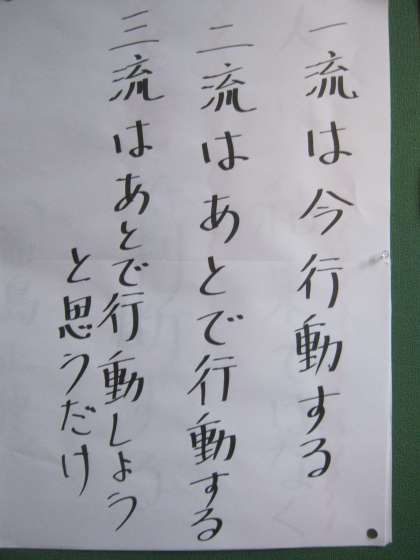 一流は今行動する
二流はあとで行動する
三流はあとで行動しよう
と思うだけ